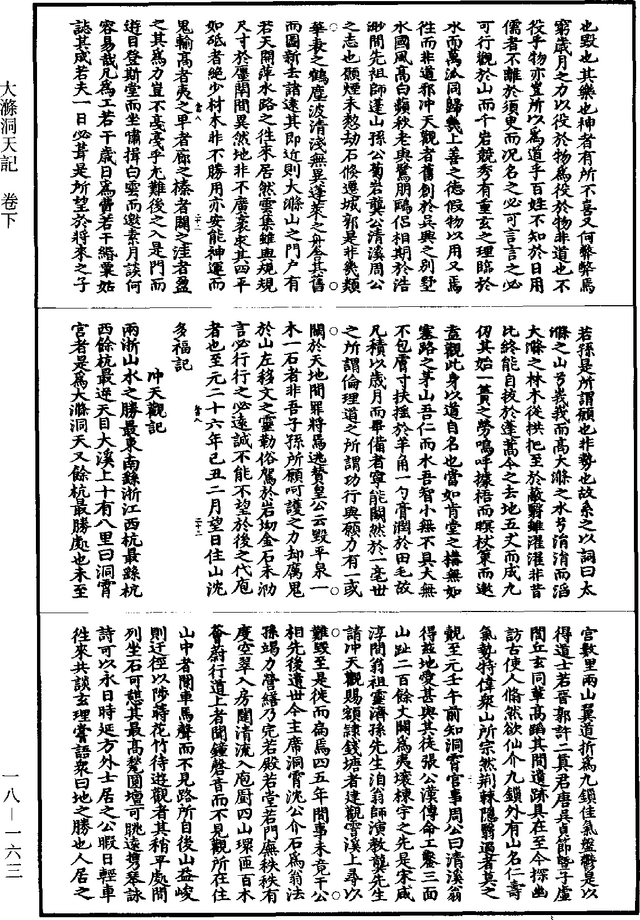 大滌洞天記 卷下
一八—一六三
也毁也其樂也神者有所不喜又何弊弊焉
窮歲月之力以役於物爲役於物非道也不
役乎物亦豈所以爲道乎百姓不知於日用
儒者不離於須臾而况名之必可言言之必
可行觀於山而千岩競秀有重玄之理臨於
水而萬派同歸幾上善之德假物以用又焉
徃而非道耶冲天觀者舊創於吳興之别墅
水國風高白蘋秋老與驚鷗侶相期於浩
渺間先祖師蓬山孫公蜀岩龔公清溪周公
之志也願煙未愁劫石倏遷城郭是非幾類
華表之鶴塵波清淺無異蓬萊之舟舍其舊
而圖新去諸遠其即近則大滌山之門户有
若天開萍水路之徃來居然雲集雖與規規
尺寸於塵閈間異然地非不廣袤求其四平
如砥者絶少材木非不勝用亦安能神運而
鬼輸高者夷之卑者廊之榛者闢之洼者盈
之其爲力豈不戞戞乎尤難後之入是門而
遊目登斯堂而坐嘯揖白雲而邀素月談何
容易哉凡爲工若干歲日爲費若干緡粟姑
誌其成若夫一日必葺是所望於將來之子
若孫是所謂願也非勢也故系之以詞曰太
滌之山兮峩峩而高大滌之水兮涓涓而滔
大滌之林木從拱把至於蔽翳雖濯濯非昔
比終能自拔於蓬蒿今之去地五丈而成九
仞其始一簣之勞鳴呼據梧而瞑杖策而遨
盖觀此身以道自名也當如肯堂之構無如
塞路之茅山吾仁而水吾智小無不具大無
不包膚寸扶摇於羊角一勺膏潤於田毛故
凡積以歲月而畢備者寧能闕然於一毫世
之所謂倫理道之所謂功行與願力有一或
闕於天地間罪將焉逃賛皇公云毁平泉一
木一石者非吾子孫所願呵護之力却厲鬼
於山左移文之靈勒俗駕於岩坳金石未泐
言必行行之必遠誠不能不望於後之代庖
者也至元二十六年己丑二月望日住山沈
多福記
冲天觀記
兩浙山水之勝最東南繇浙江西杭最繇杭
西餘杭最逆天目大溪上十有八里曰洞霄
宮者是爲大滌洞天又餘杭最勝處也未至
宮數里兩山翼道折爲九鎖佳氣盤礴是以
得道士若晉郭許二真君唐吳貞節暨子虚
閭丘玄同輩高蹈其間遺跡具在至今探幽
訪古使人翛然欲仙介九鎖外有山名仁壽
氣勢特偉衆山所宗然荆棘隱翳過者莫之
覩至元壬午前知洞霄官事周公曰清溪翁
得茲地愛甚與其徒張公漢傳命工鑿三面
山趾二百餘丈闢爲夷壤棟宇之先是宋咸
淳間翁祖靈濟孫先生洎翁師演教龔先生
請冲天觀賜額隸錢塘者建觀霅溪上尋以
難毁至是徙而侖焉四五年間事未竟于公
相先後遺世今主席洞霄沈公介石爲翁法
孫竭力營繕乃完若殿若堂若門廡秩秩有
度空翠入房闥清流入庖厨四山環匝百木
薈蔚行道上者聞鐘磬音而不見觀所在住
山中者聞車馬聲而不見路所自後山益峻
則迂徑以陟蒔花竹待遊觀者其稍平處間
列坐石可憩其最高甃圓壇可眺遠携琴詠
詩可以永日時延方外士居之公暇日輕車
徃來共談玄理嘗語衆曰地之勝也人居之